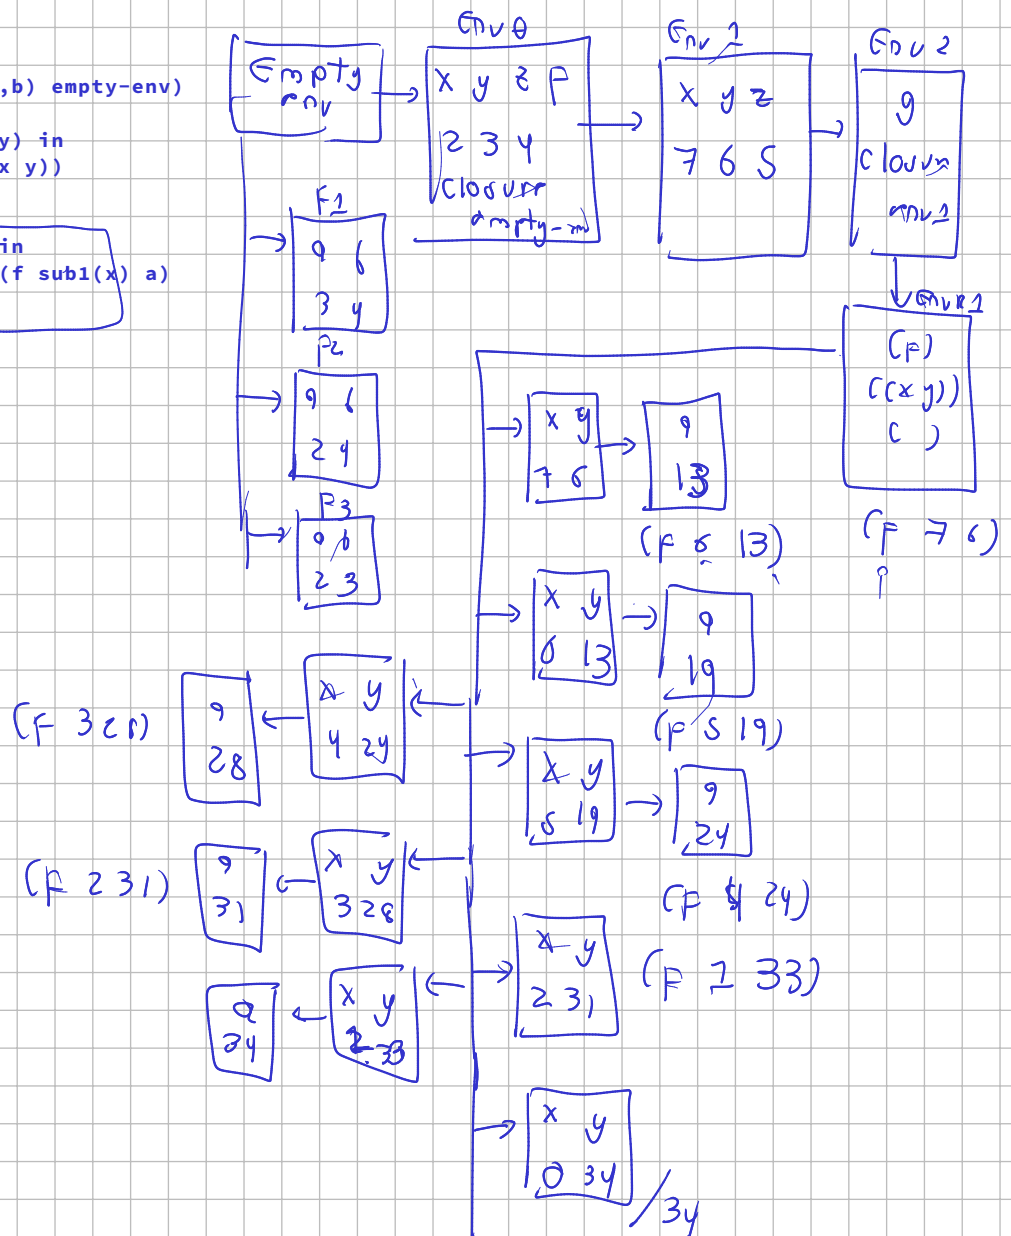 ,b) empty-env)
y) in
x y))
in
(f sub1(x) a)
Empty
env
Env 0
x y z F
2 3 4
closure
empty-env
Env 1
x y z
7 6 5
Env 2
g
closure
env1
F1
a b
3 4
F2
a b
2 4
F3
a b
2 3
EnvR1
(F)
((x y))
( )
(F 7 6)
x y
7 6
a
13
(F 6 13)
x y
6 13
a
19
(F 5 19)
x y
5 19
a
24
(F 4 24)
x y
4 24
a
28
(F 3 28)
x y
3 28
a
31
(F 2 31)
x y
2 31
(F 1 33)
x y
33
a
34
x y
0 34
/34